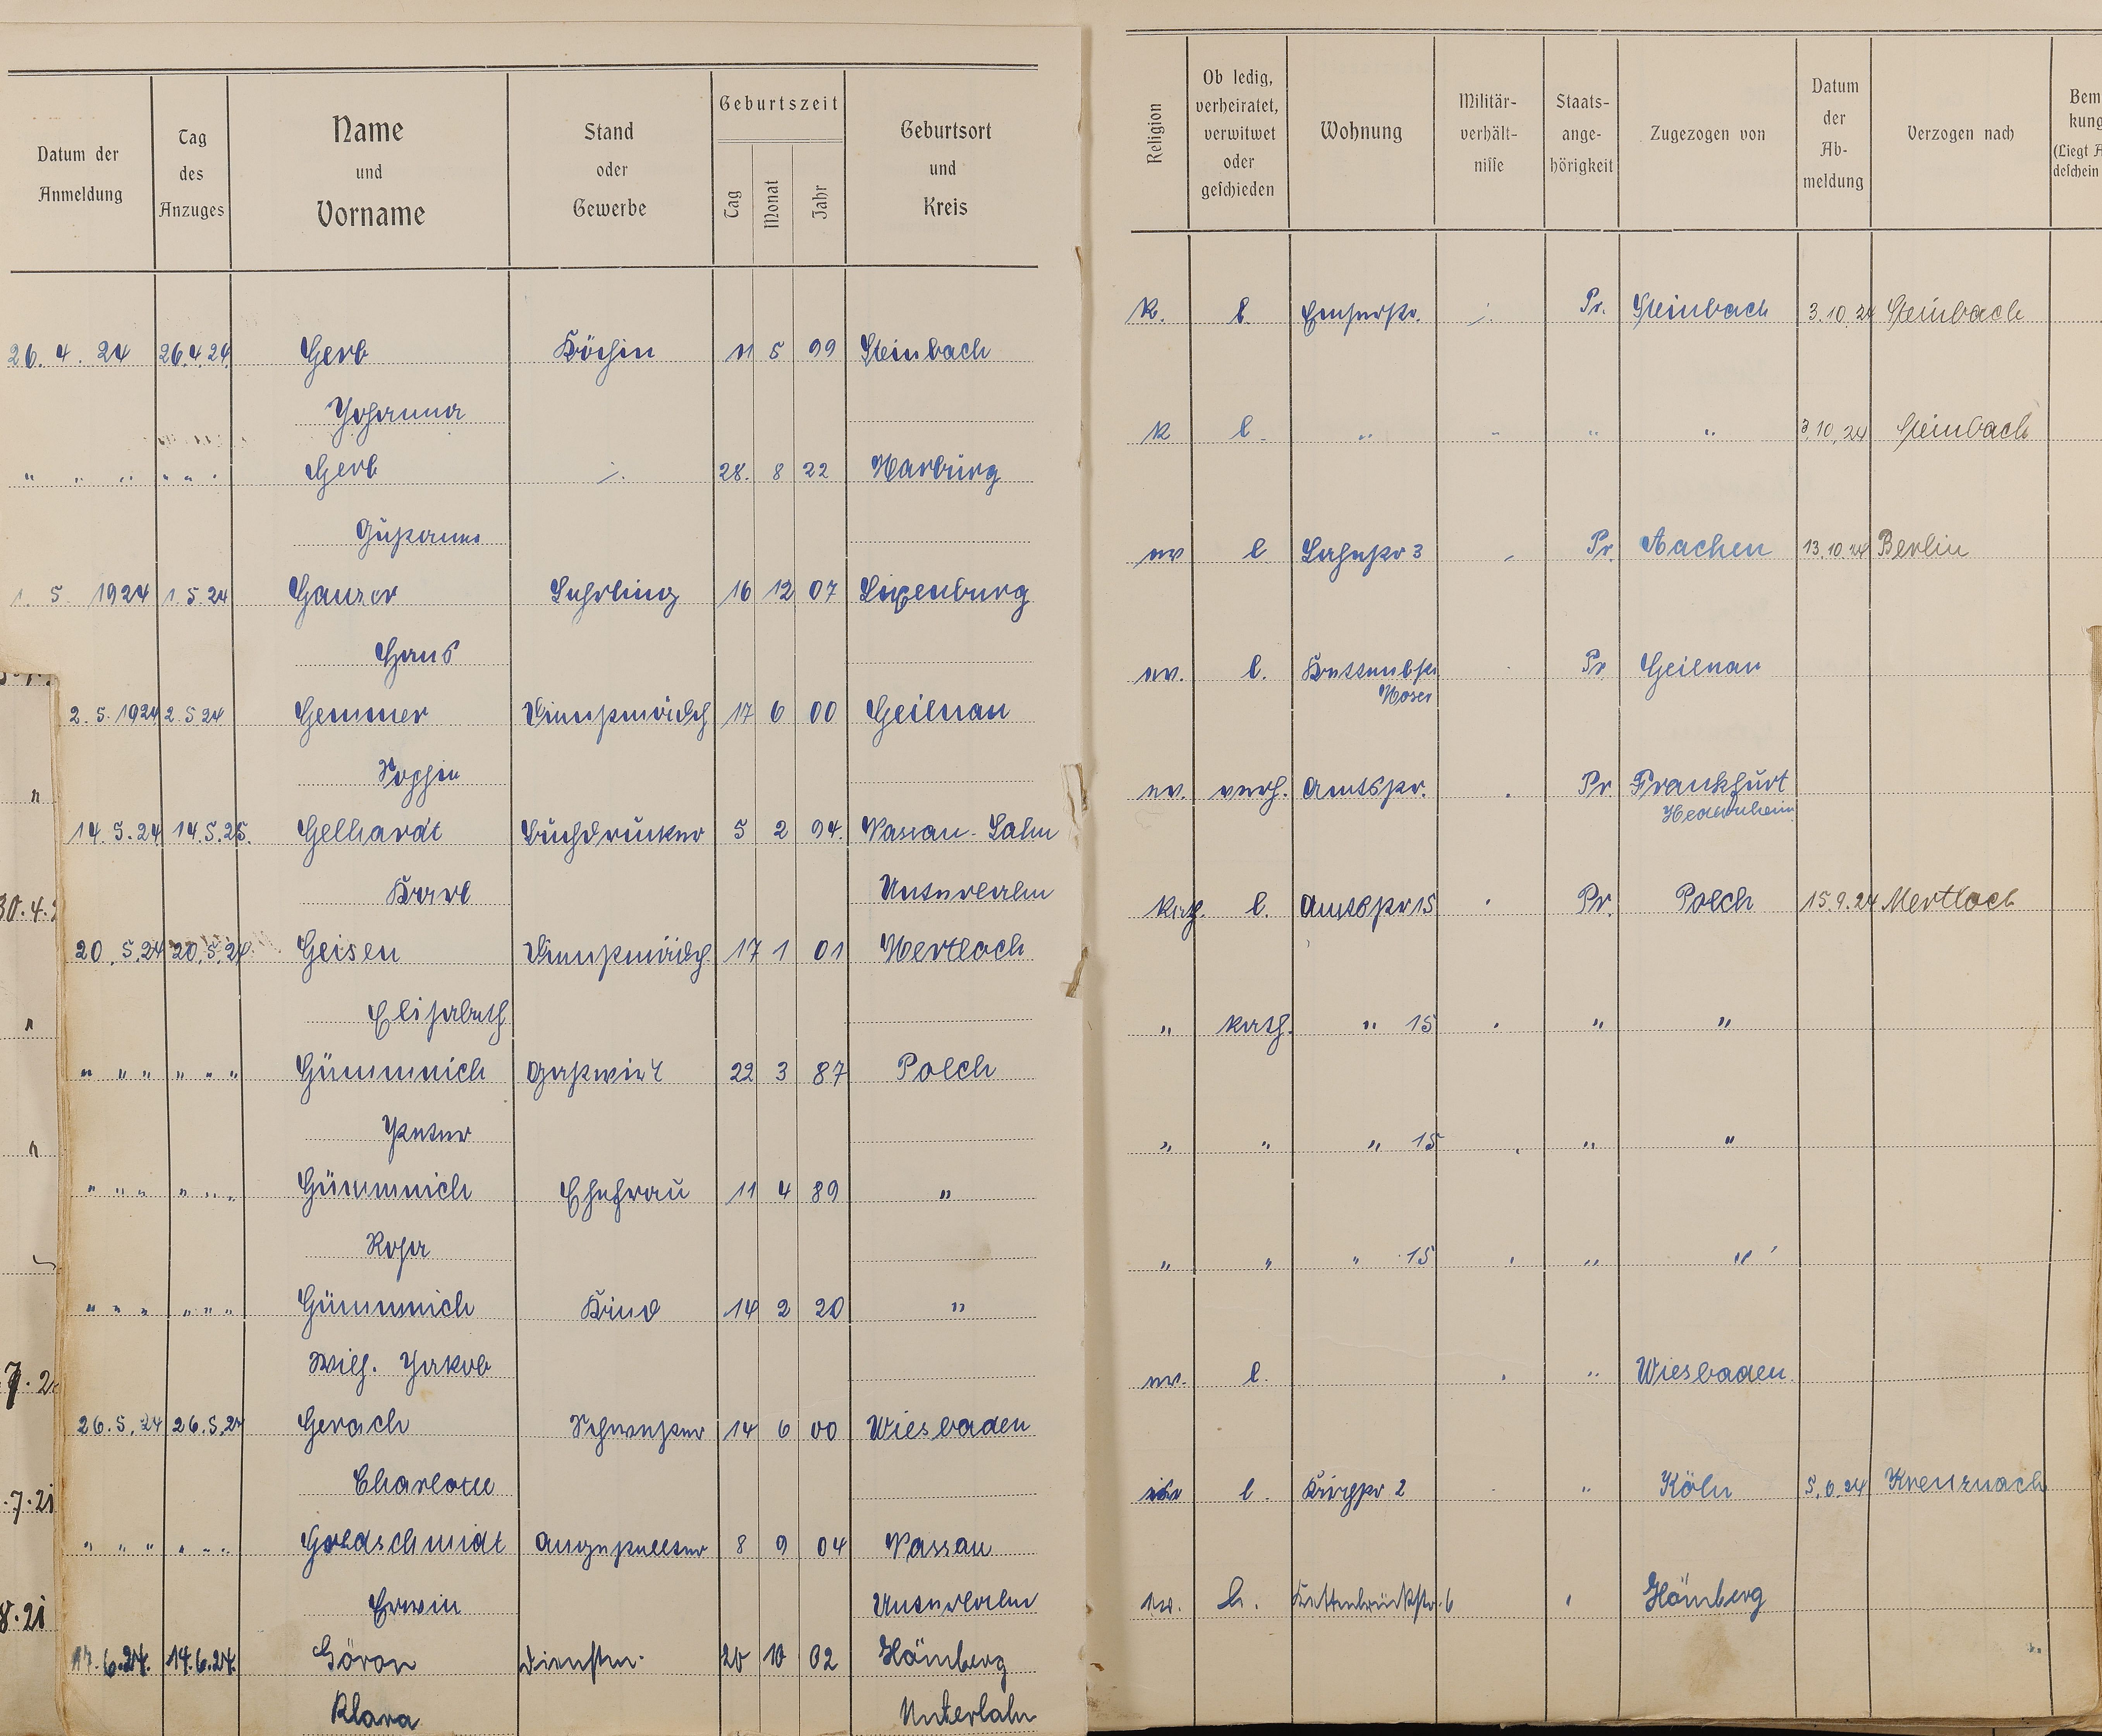 Datum der Anmeldung
Tag des Anzuges
Name und Vorname
Stand oder Gewerbe
Geburtszeit
Tag Monat Jahr
Geburtsort und Kreis
26. 4. 24 26.4.24 Gerb Köchin 11 5 99 Steinbach
Johanna
" " " " " " Gerb ./. 28. 8 22 Marburg
1. 5. 1924 1.5.24 Ganzer Lehrling 16 12 07 Luxenburg
Hans
2.5.1924 2.5.24 Gemmer Dienstmädch 17 6 00 Geilnau
Sophie
14.5.24 14.5.25. Gelhardt Buchdrucker 5 2 94. Nassau-Lahn
Karl Unterlahn
20.5.24 20.5.24. Geisen Dienstmädch 17 1 01 Mertloch
Elisabeth
" " " " " " Gümmnich Gastwirt 22 3 87 Polch
Peter
" " " " " " Gümmnich Ehefrau 11 4 89 "
Rosa
" " " " " " Gümmnich Kind 14 2 20 "
Wilh. Jakob
26.5.24 26.5.24 Gerach Schwester 14 6 00 Wiesbaden
Charlotte
" " " " " " Goldschmidt Angestellter 8 9 04 Nassau
Erwin Unterlahn
17.6.24. 14.6.24. Göron Dienstm. 20 10 02 Hömberg
Klara Unterlahn
30.4.2
Religion
Ob ledig, verheiratet, verwitwet oder geschieden
Wohnung
Militär-verhält-nisse
Staats-ange-hörigkeit
Zugezogen von
Datum der Ab-meldung
Verzogen nach
Bem
kung
(Liegt A
deschein
k. l. Emserstr. ./. Pr. Steinbach 3.10.24 Steinbach
k l. " " " " 3.10.24 Steinbach
ev l Lahnstr 3 Pr. Aachen 13.10.24 Berlin
ev. l. Kettenbstr Pr. Geilnau
Moser
ev. verh. Amtsstr. Pr Frankfurt
Heddernheim
kath. l. Amtsstr 15 Pr. Polch 15.9.24 Mertloch
" kath. " 15 " "
" " " 15 " "
" " " 15 " "
ev. l. " Wiesbaden
isr l. Kirchstr 2 " Köln 5.6.24 Kreuznach
ev. l. Kettenbrückstr. 6 " Hömberg